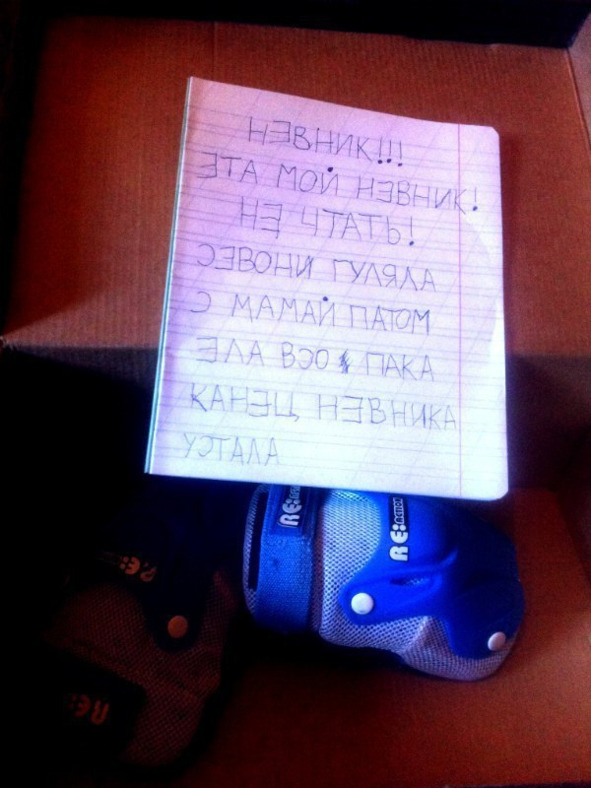 НЭВНИК!!!
ЭТА МОЙ НЭВНИК!
НЭ ЧТАТЬ!
СЭВОНИ ГУЛЯЛА
С МАМАЙ ПАТОМ
ЭЛА ВЭО ПАКА
КАНЭЦ НЭВНИКА
УСТАЛА
RE:ACTION
RE:ACTION
RE:
RE: